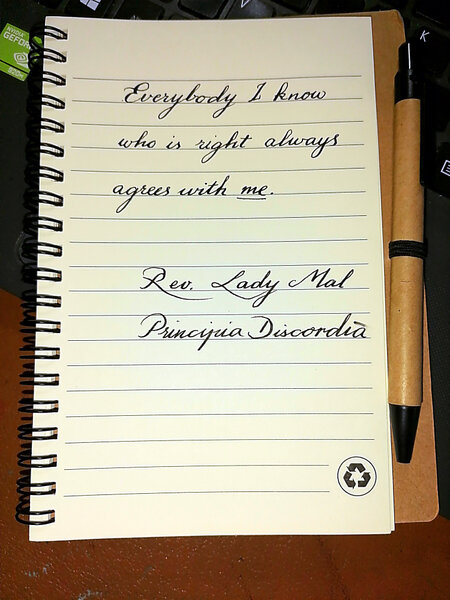 NVIDIA
GEFOR
Everybody I know
who is right always
agrees with me.
Rev. Lady Mal
Principia Discordia
K